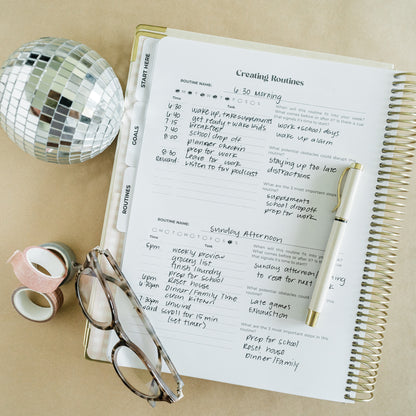 START HERE
GOALS
ROUTINES
Creating Routines
ROUTINE NAME: 6:30 Morning
Time Task
6:30 wake up, take supplements
6:40 get ready + wake kids
7:15 breakfast
7:40 school drop off
8:00 planner checkin
prep for work
8:30 Leave for work
Reward: Listen to fav podcast
When will this routine fit into your week?
What comes before or after it?
work + school days
wake up alarm
What potential obstacles could disrupt this
staying up too late
distractions
What are the 3 most important steps
supplements
school dropoff
prep for work
ROUTINE NAME: Sunday Afternoon
Time Task
5pm weekly preview
grocery list
finish laundry
prep for school
6pm Reset house
Dinner/Family Time
clean kitchen
unwind
scroll for 15 min
(set timer)
When will this routine fit into
What comes before or after
Sunday afternoon
to reset for next
What potential
Late games
Exhaustion
What are the 3 most important steps in this
routine?
prep for school
Reset house
Dinner/Family